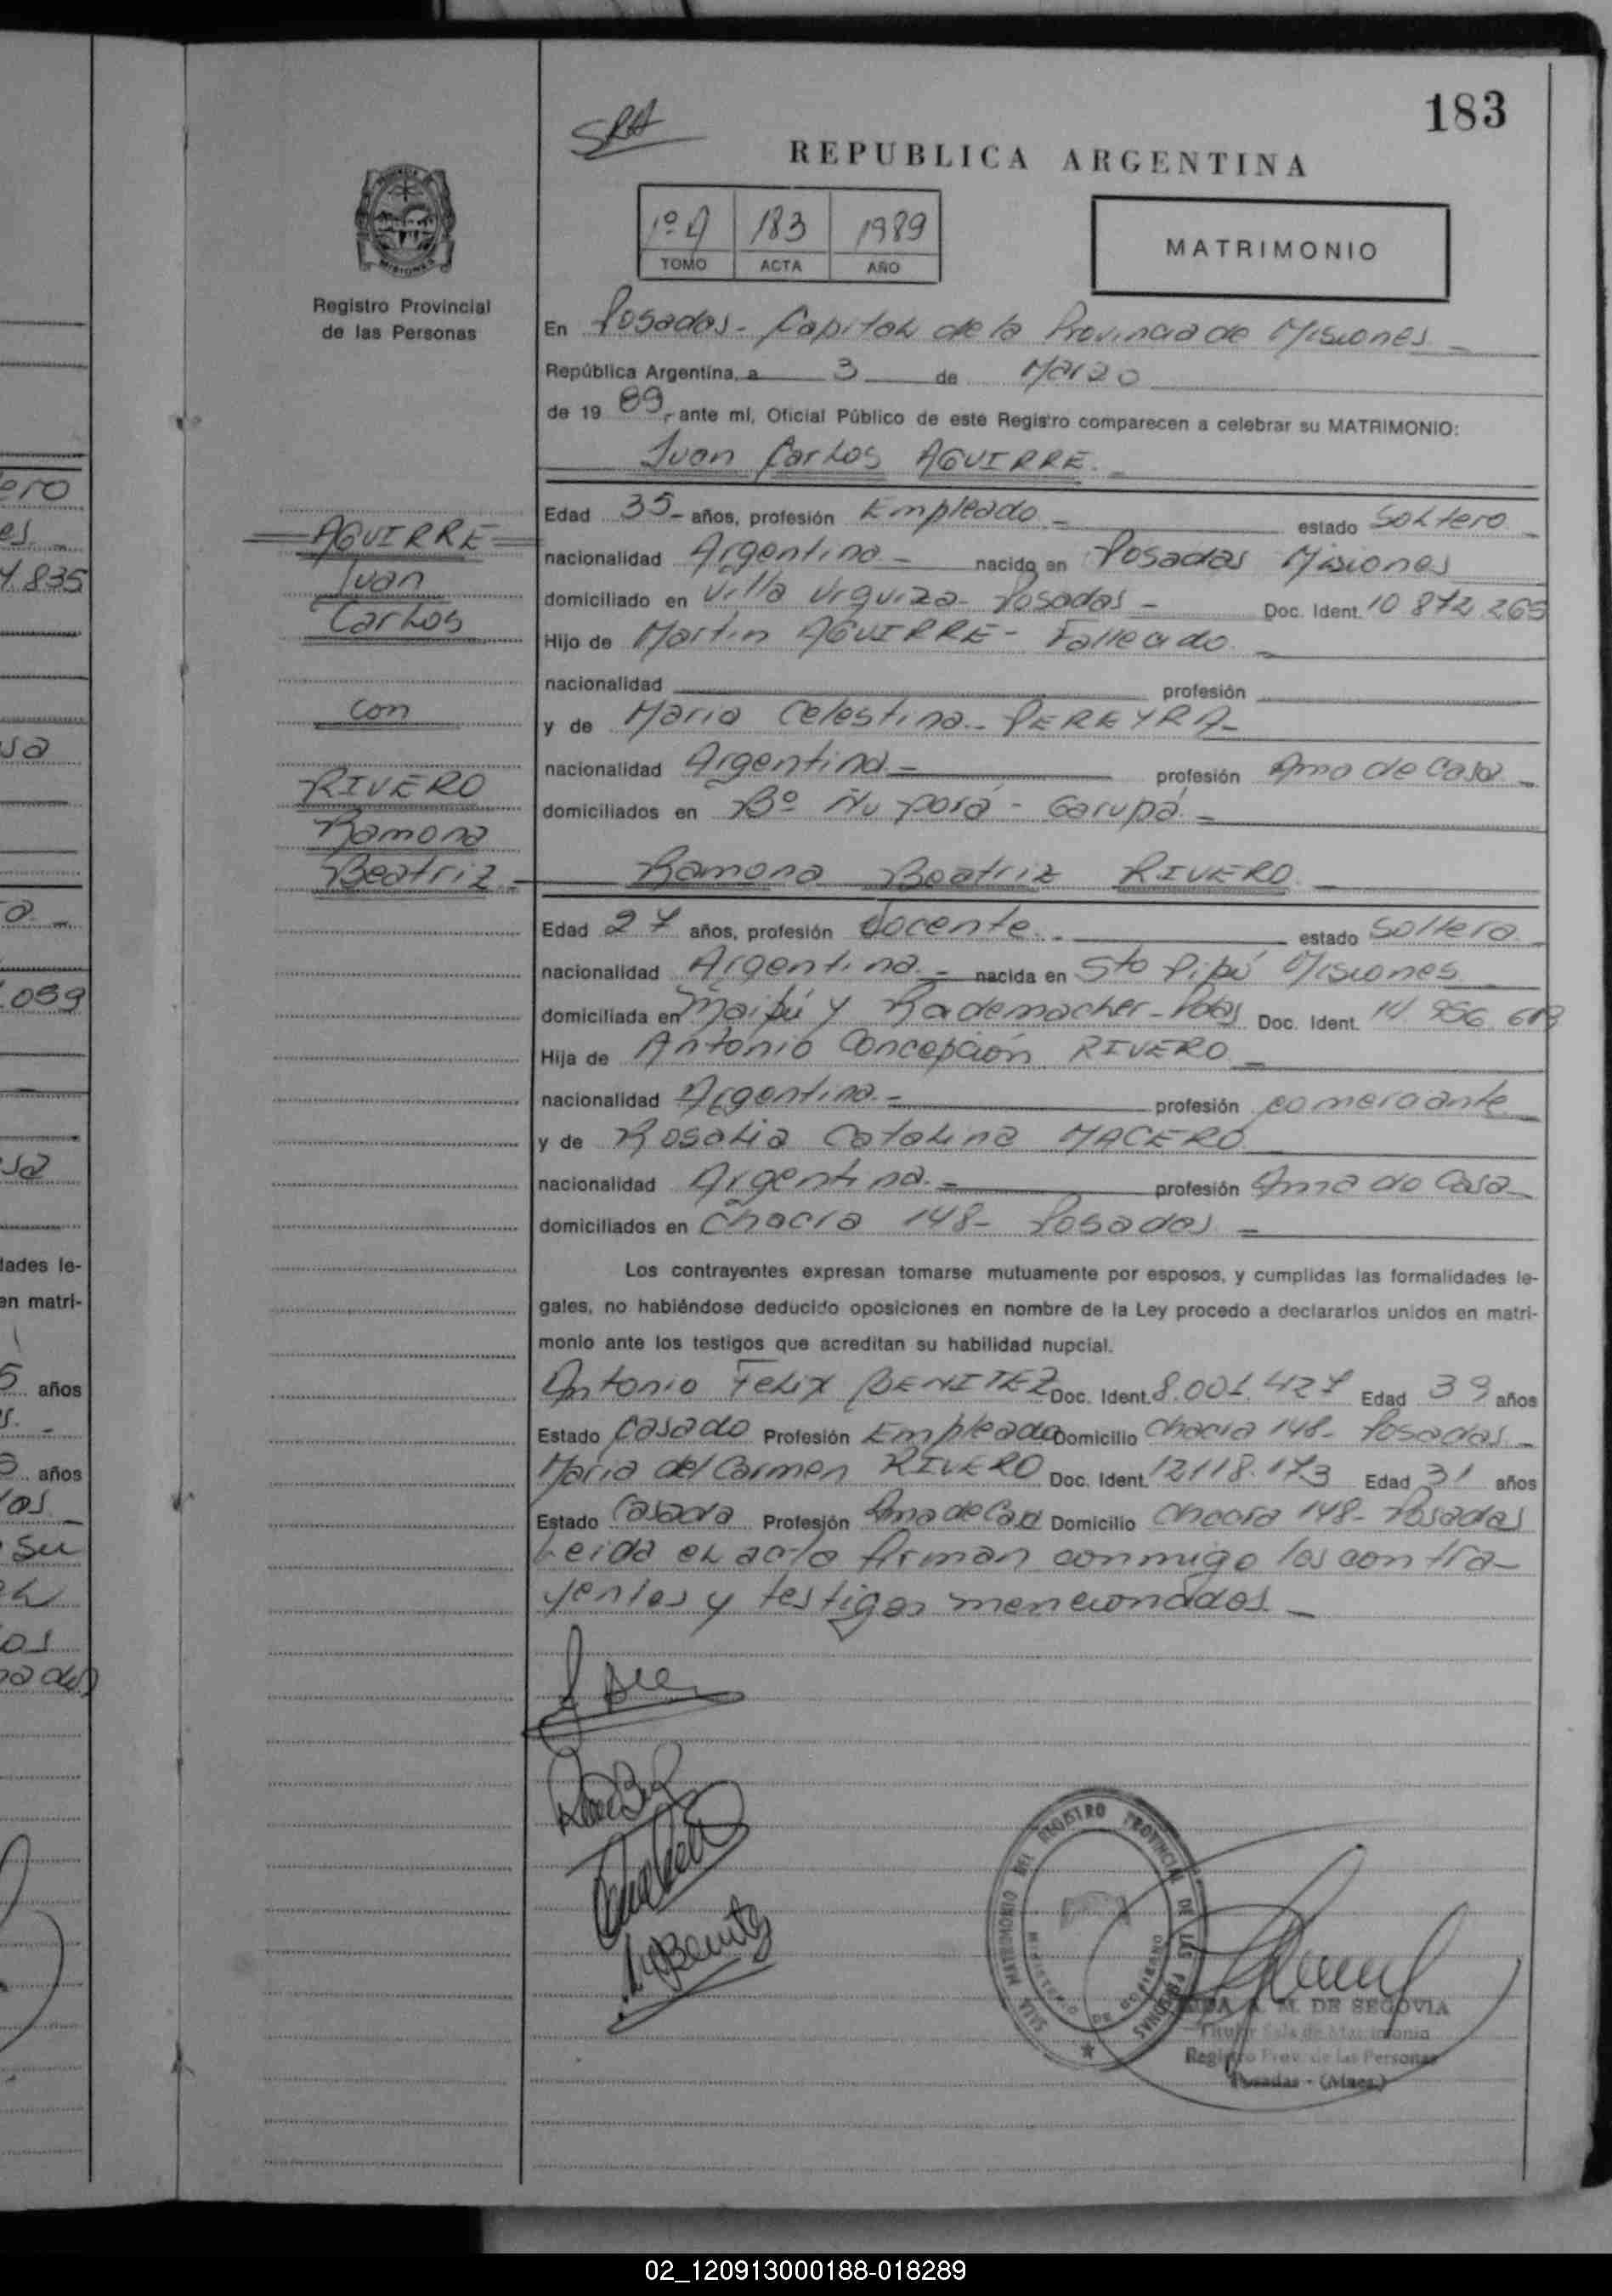 183
SRA
REPUBLICA ARGENTINA
1º A 183 1989
TOMO ACTA AÑO
MATRIMONIO
Registro Provincial
de las Personas
En Posadas - Capital de la Provincia de Misiones
República Argentina, a 3 de Marzo
de 19 89, ante mí, Oficial Público de este Registro comparecen a celebrar su MATRIMONIO:
Juan Carlos AGUIRRE
AGUIRRE
Juan
Carlos
con
RIVERO
Ramona
Beatriz
Edad 35 años, profesión Empleado estado Soltero
nacionalidad Argentina nacido en Posadas Misiones
domiciliado en Villa Urquiza - Posadas - Doc. Ident. 10 872 265
Hijo de Martin AGUIRRE - Fallecido
nacionalidad profesión
y de Maria Celestina PEREYRA
nacionalidad Argentina profesión Ama de Casa
domiciliados en Bº Ñu porá - Garupá
Ramona Beatriz RIVERO
Edad 27 años, profesión docente estado Soltera
nacionalidad Argentina nacida en Sto Pipó Misiones
domiciliada en Maipú y Rademacher - Pdas Doc. Ident. 14 956
Hija de Antonio Concepción RIVERO
nacionalidad Argentina profesión comerciante
y de Rosalia Catalina MACERO
nacionalidad Argentina profesión Ama de Casa
domiciliados en Chacra 148 - Posadas
Los contrayentes expresan tomarse mutuamente por esposos, y cumplidas las formalidades le-
gales, no habiéndose deducido oposiciones en nombre de la Ley procedo a declararlos unidos en matri-
monio ante los testigos que acreditan su habilidad nupcial.
Antonio Felix BENITEZ Doc. Ident. 8.001.427 Edad 39 años
Estado Casado Profesión Empleado Domicilio Chacra 148 - Posadas
Maria del Carmen RIVERO Doc. Ident. 12118.173 Edad 31 años
Estado Casada Profesión Ama de Casa Domicilio Chacra 148 - Posadas
Leida el acta firman conmigo los contra-
yentes y testigos mencionados
Benitez
SALA MATRIMONIO DEL REGISTRO PROVINCIAL DE LAS PERSONAS
MINISTERIO DE GOBIERNO
A. M. DE SEGOVIA
Titular Sala de Matrimonio
Registro Prov. de las Personas
Posadas - (Mnes.)
ero
es
4.835
sa
a
.059
sa
dades le-
en matri-
5 años
s.
años
os
su
os
02_120913000188-018289